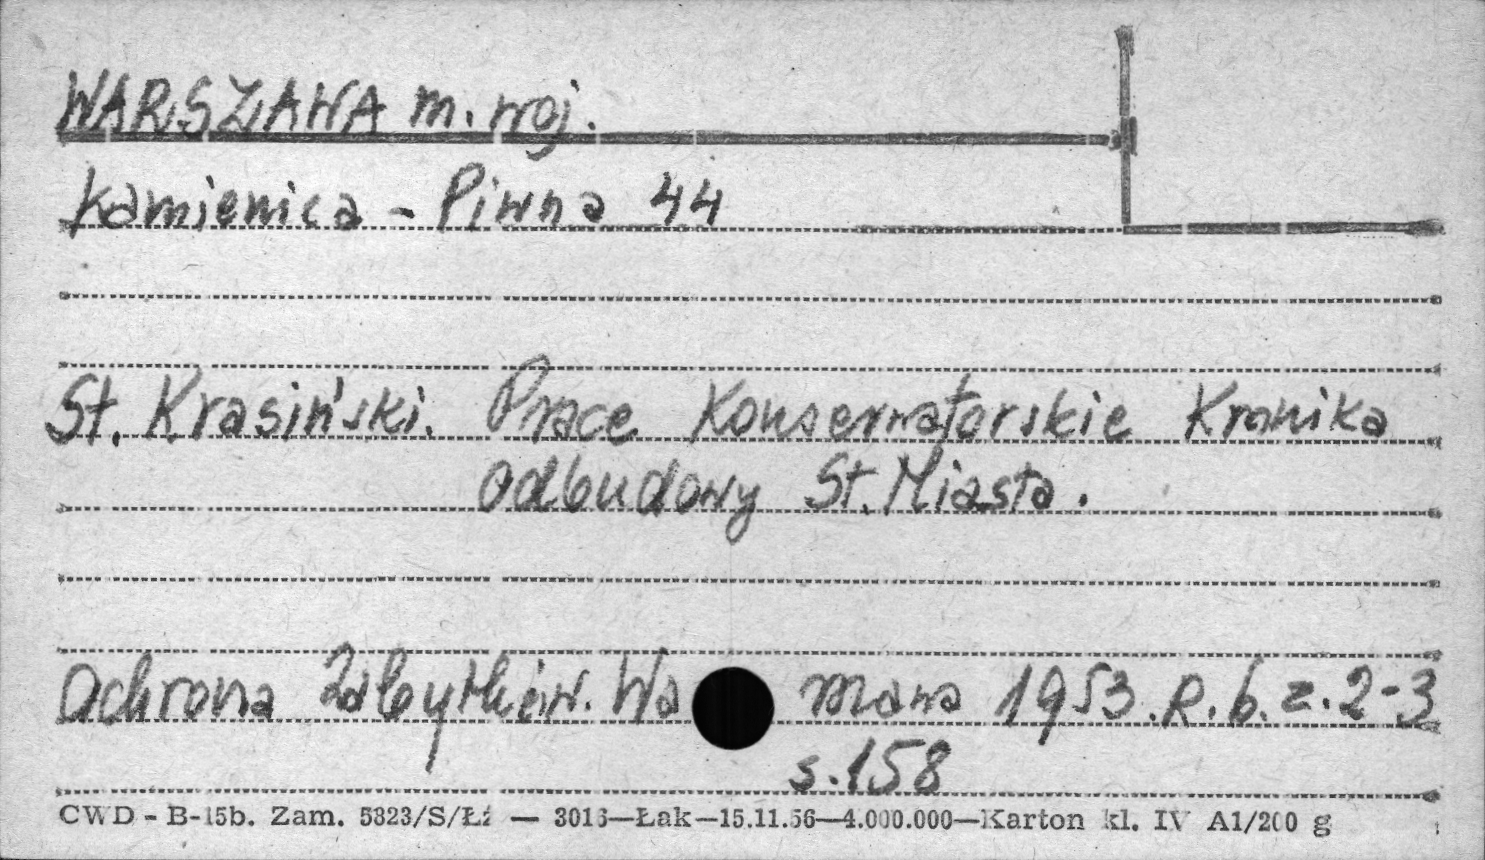 WARSZAWA m. woj.
Kamienica - Piwna 44
St. Krasiński. Prace Konserwatorskie Kronika
odbudowy St. Miasta.
Ochrona Zabytków. Wa mawa 1953. R. 6. z. 2-3
s. 158
CWD - B-15b. Zam. 5323/S/Łź — 3016—Łak—15.11.56—4.000.000—Karton kl. IV A1/200 g